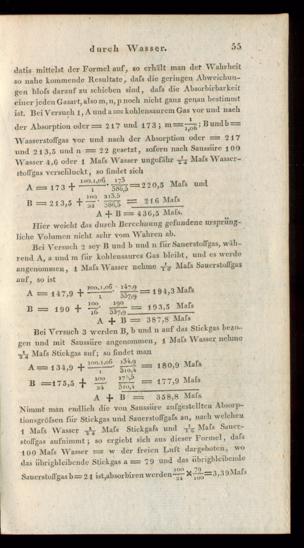 durch Wasser. 55
datis mittelst der Formel auf, so erhält man der Wahrheit
so nahe kommende Resultate, daſs die geringen Abweichun-
gen bloſs darauf zu schieben sind, daſs die Absorbirbarkeit
einer jeden Gasart, also m, n, p noch nicht ganz genau bestimmt
ist. Bei Versuch 1, A und a = kohlensaurem Gas vor und nach
der Absorption oder = 217 und 173; m = 1/1,06; B und b =
Wasserstoffgas vor und nach der Absorption oder = 217
und 213,5 und n = 22 gesetzt, sofern nach Saussüre 100
Wasser 4,6 oder 1 Maſs Wasser ungefähr 1/22 Maſs Wasser-
stoffgas verschluckt, so findet sich
A = 173 + 100.1,06/1 · 173/386,5 = 220,5 Maſs und
B = 213,5 + 100/22 · 213,5/386,5 = 216 Maſs
A + B = 436,5 Maſs.
Hier weicht das durch Berechnung gefundene ursprüng-
liche Volumen nicht sehr vom Wahren ab.
Bei Versuch 2 sey B und b und n für Sauerstoffgas, wäh-
rend A, a und m für kohlensaures Gas bleibt, und es werde
angenommen, 1 Maſs Wasser nehme Maſs Sauerstoffgas
auf, so ist
A = 147,9 + 100.1,06/1 · 147,9/337,9 = 194,3 Maſs
B = 190 + 100/16 · 190/337,9 = 193,5 Maſs
A + B = 387,8 Maſs
Bei Versuch 3 werden B, b und n auf das Stickgas bezo-
gen und mit Saussüre angenommen, 1 Maſs Wasser nehme
1/24 Maſs Stickgas auf; so findet man
A = 134,9 + 100.1,06/1 · 134,9/310,4 = 180,9 Maſs
B = 175,5 + 100/24 · 175,5/310,4 = 177,9 Maſs
A + B = 358,8 Maſs
Nimmt man endlich die von Saussüre aufgestellten Absorp-
tionsgröſsen für Stickgas und Sauerstoffgas an, nach welchen
1 Maſs Wasser 1/24 Maſs Stickgas und Maſs Sauer-
stoffgas aufnimmt; so ergiebt sich aus dieser Formel, daſs
100 Maſs Wasser = w der freien Luft dargeboten, wo
das übrigbleibende Stickgas a = 79 und das übrigbleibende
Sauerstoffgas b = 21 ist, absorbiren werden 100/24 × 79/100 = 3,39 Maſs